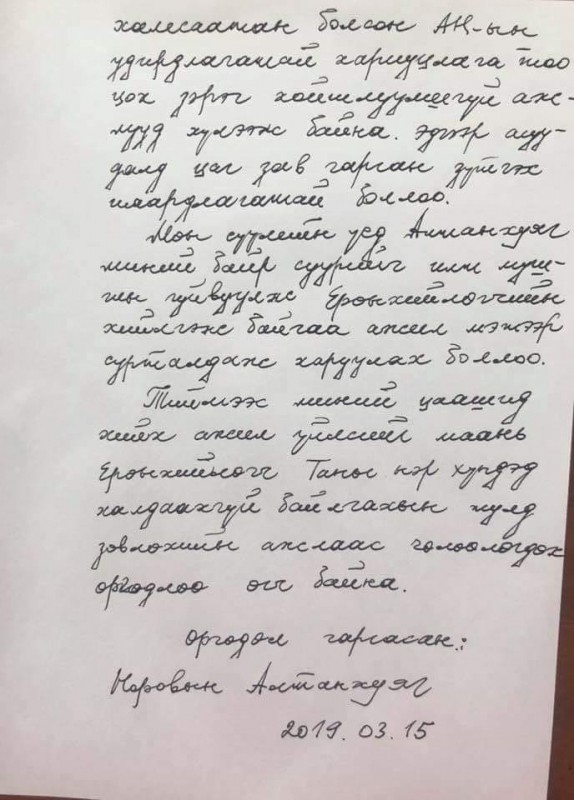 халдсаатан болсон АН-ын
удирдлагатай хариуцлага тоо
цох зэрэг хойшлуулшгүй ажлууд хүлээж байна. Эдгээр асуу-
далд цаг зав гарган зүтгэх
шаардлагатай боллоо.
Мөн сүүлийн үед Алтанхуяг
миний байр суурийг илт муш-
гин гуйвуулж Ерөнхийлөгчийн
хийлгэж байгаа ажил мэтээр
сурталдаж харуулах боллоо.
Тиймээс миний цаашид
хийх ажил үйлсийг маань
Ерөнхийлөгч Таны нэр хүндэд
халдаахгүй байлгахын тулд
зөвлөхийн ажлаас чөлөөлөгдөх
өргөдлөө өгч байна.
Өргөдөл гаргасан:
Норовын Алтанхуяг
2019.03.15